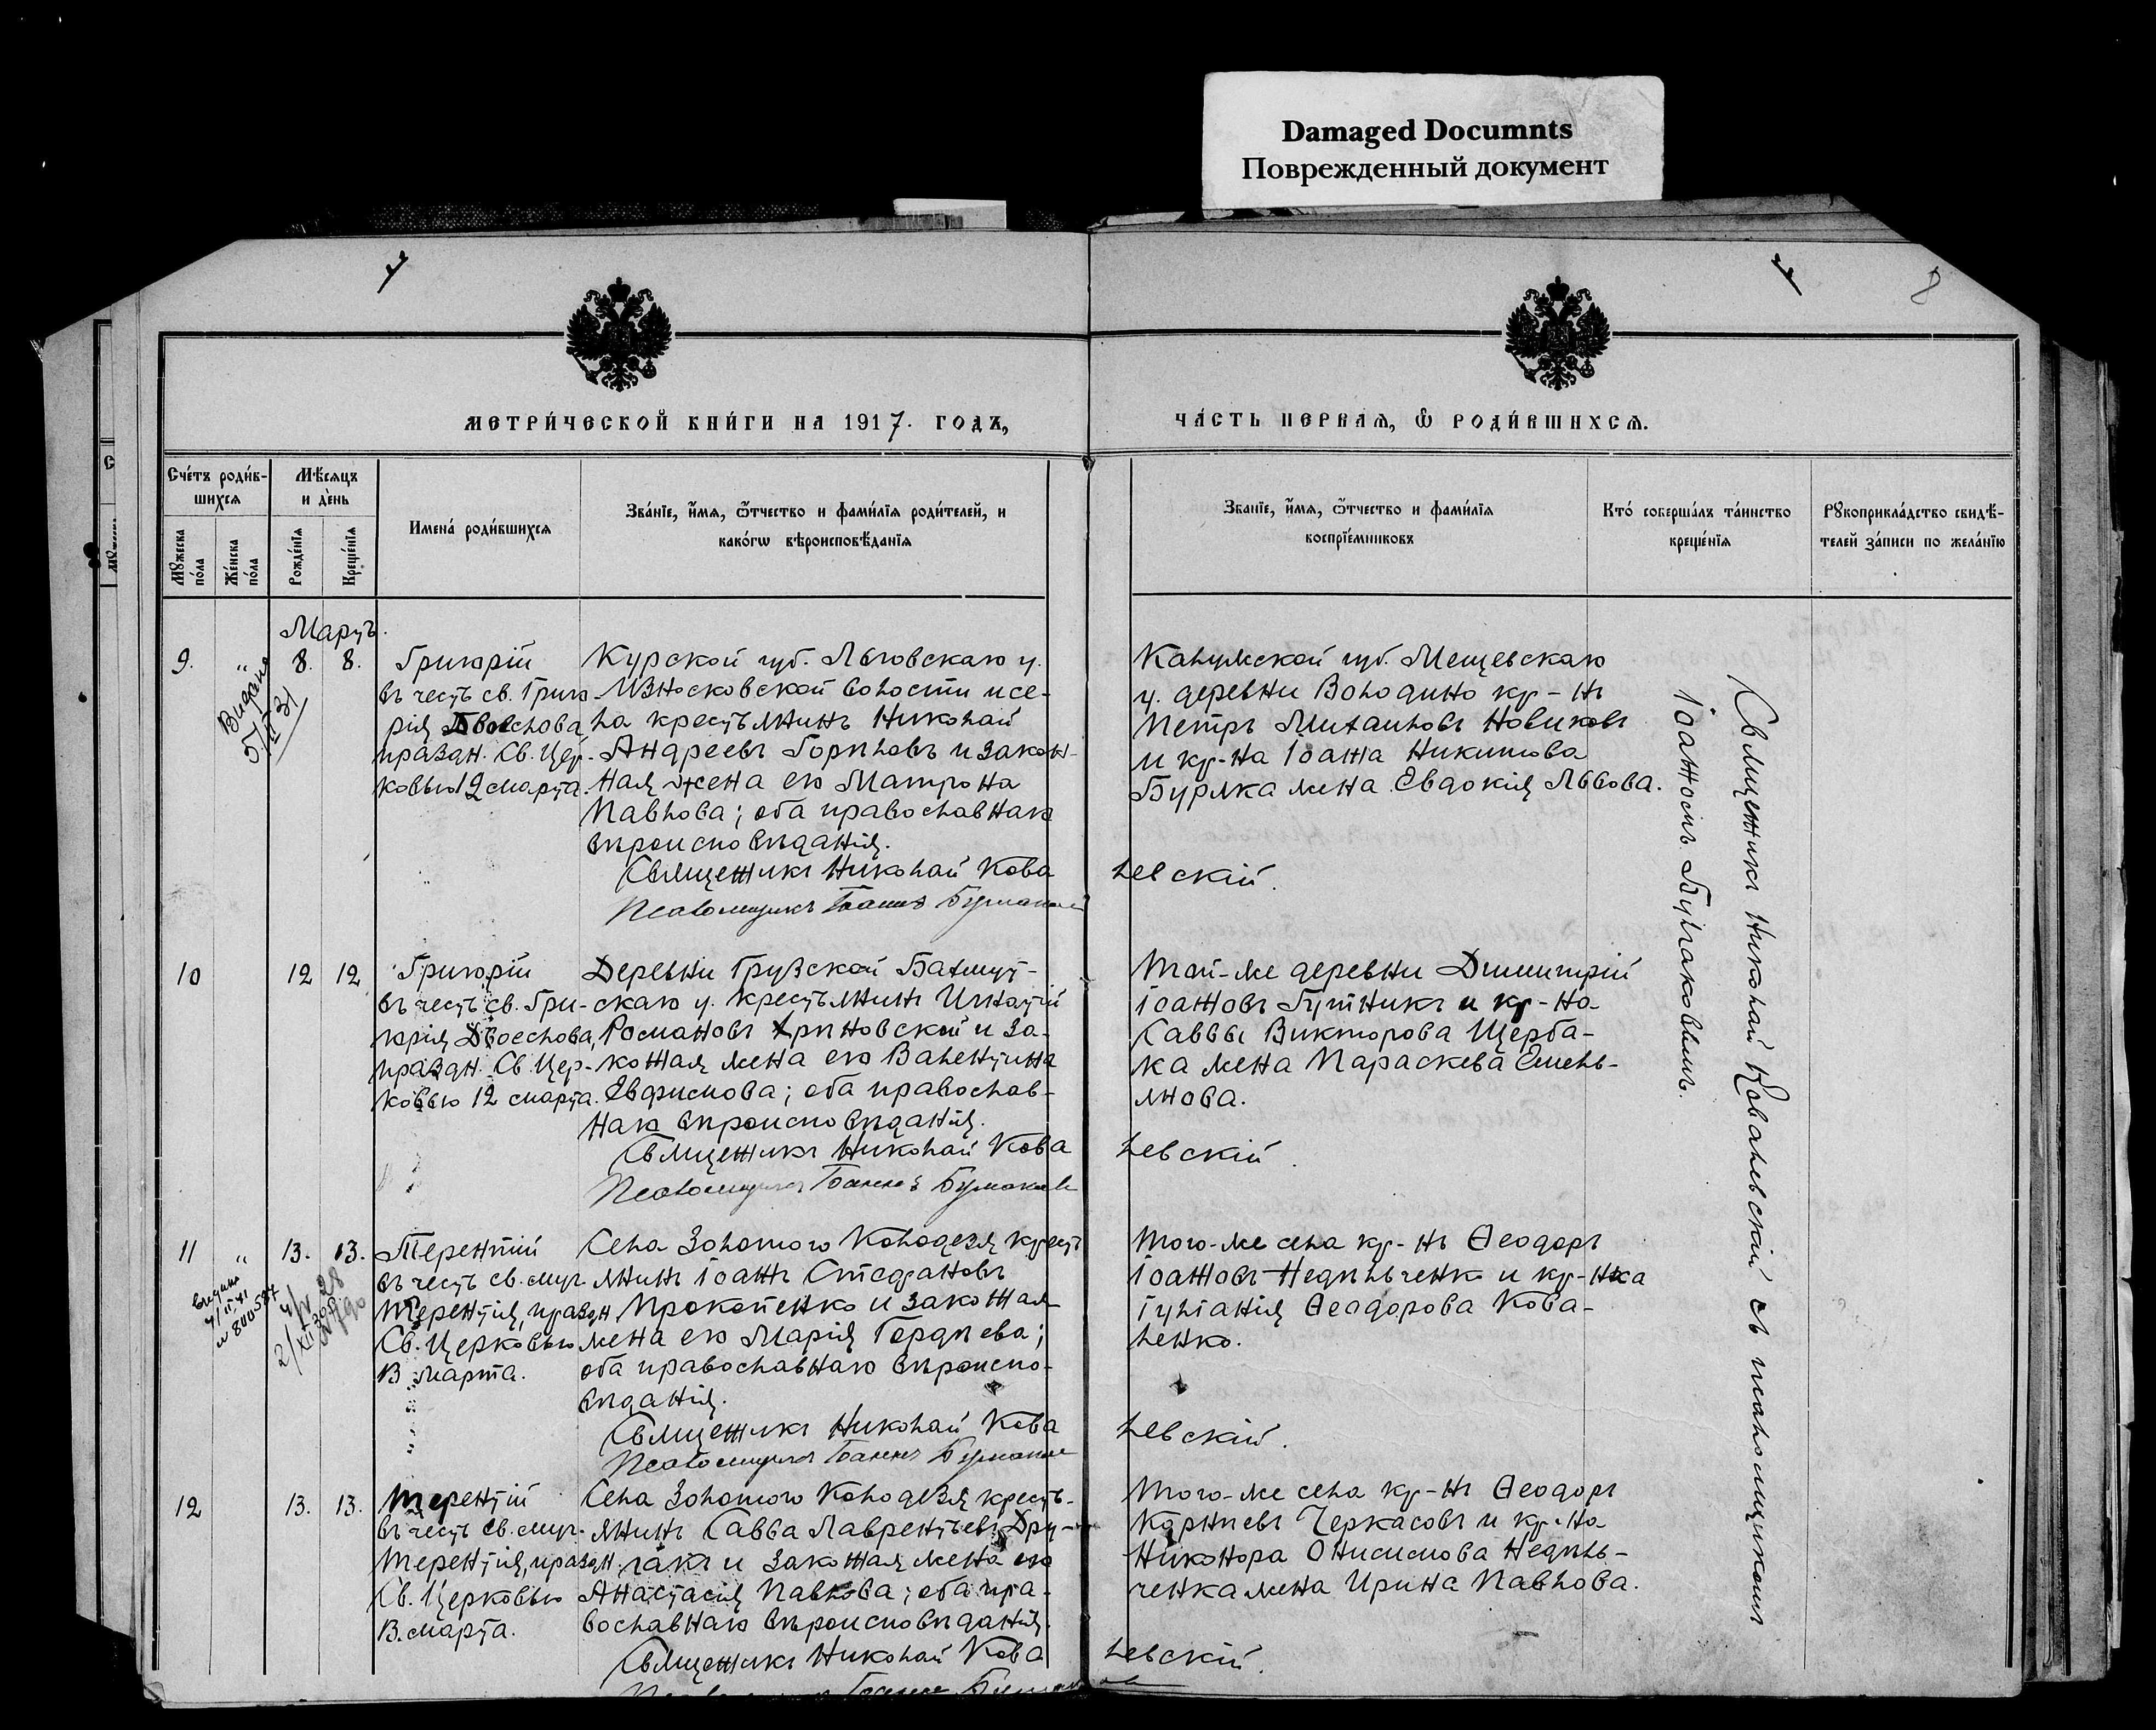 Damaged Documnts
Поврежденный документ
7
7
8
МЕТРИ́ЧЕСКОЙ КНИ́ГИ НА 1917. ГОДЪ,
ЧА́СТЬ ПЕРВАЯ, Ѿ РОДИ́ВШИХСЯ.
Сче́тъ роди́в-
шихся
Мѣ́сяцъ
и де́нь
Мꙋ́жеска по́ла
Же́нска по́ла
Рожде́нїя
Креще́нїя
Имена́ роди́вшихся
Зва́нїе, и҆́мя, ѻ҆́тчество и фами́лїя роди́телей, и
како́гѡ вѣроисповѣ́данїя
Зва́нїе, и҆́мя, ѻ҆́тчество и фами́лїя
воспрїе́мниковъ
Кто́ соверша́лъ та́инство
креще́нїя
Рꙋкоприкла́дство свидѣ́-
телей за́писи по жела́нїю
Мартъ.
9. " 8. 8.
Выдана
5/II 31
Григорій
въ честь св. Григо-
рія Двоеслова,
праздн. Св. Цер-
ковью 12 марта.
Курской губ. Льговскаго у.
Износковской волости и се-
ла крестьянинъ Николай
Андреевъ Гориловъ и закон-
ная жена его Матрона
Павлова; оба православнаго
вѣроисповѣданія.
Священникъ Николай Кова
Псаломщикъ Іоаннъ Булгаков
Калужской губ. Мещевскаго
у. деревни Володино кр-нъ
Петръ Михаиловъ Новиковъ
и кр-на Іоанна Никитова
Буряка жена Евдокія Львова.
левскій.
10 12 12
Григорій
въ честь св. Гри-
горія Двоеслова,
праздн. Св. Цер-
ковью 12 марта.
Деревни Грузской Бахмут-
скаго у. крестьянинъ Игнатій
Романовъ и за-
конная жена его Валентина
Евфимова; оба православ-
наго вѣроисповѣданія.
Священникъ Николай Кова
Псаломщикъ Іоаннъ Булгаковъ
Той-же деревни Димитрій
Іоанновъ Гутникъ и кр-на
Саввы Викторова Щерба-
ка жена Параскева Емель-
янова.
левскій.
11 " 13. 13.
Терентій
въ честь св. муч.
Терентія, праздн.
Св. Церковью
13 марта.
Села Золотого Колодезя крест
янинъ Іоаннъ Стефановъ
Прокопенко и законная
жена его Марія Гордѣева;
оба православнаго вѣроиспо-
вѣданія.
Священникъ Николай Кова
Псаломщикъ Іоаннъ Булгаков
Того-же села кр-нъ Ѳеодоръ
Іоанновъ Недѣльченко и кр-нка
Іуліанія Ѳеодорова Кова-
ленко.
левскій.
12 13. 13.
Терентій
въ честь св. муч.
Терентія, праздн.
Св. Церковью
13. марта.
Села Золотого Колодезя кресть-
янинъ Савва Лаврентьевъ Дру-
гакъ и законная жена его
Анастасія Павлова; оба пра-
вославнаго вѣроисповѣданія.
Священникъ Николай Кова
Того-же села кр-нъ Ѳеодоръ
Корнѣевъ Черкасовъ и кр-на
Никонора Онисимова Недѣль-
ченка жена Ирина Павлова.
левскій.
Священникъ Николай Ковалевскій съ псаломщикомъ
Іоанномъ Булгаковымъ.